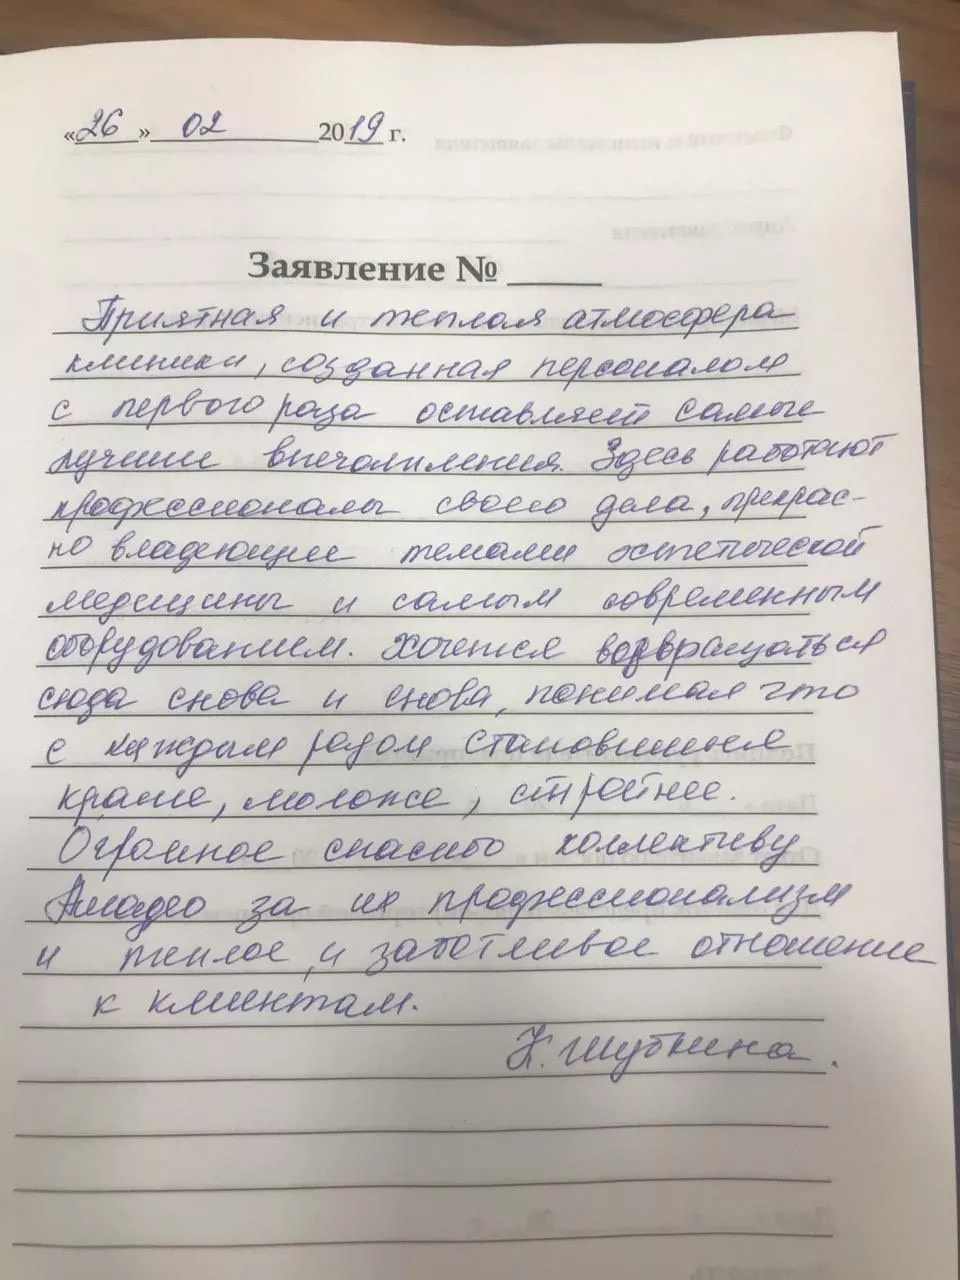 «26» 02 2019 г.
Заявление № ____
Приятная и теплая атмосфера
клиники, созданная персоналом
с первого раза оставляет самые
лучшие впечатления. Здесь работают
профессионалы своего дела, прекрас-
но владеющие темами эстетической
медицины и самым современным
оборудованием. Хочется возвращаться
сюда снова и снова, понимая что
с каждым разом становишься
краше, моложе, стройнее.
Огромное спасибо коллективу
Амадео за их профессионализм
и теплое, и заботливое отношение
к клиентам.
Н. Шубкина.